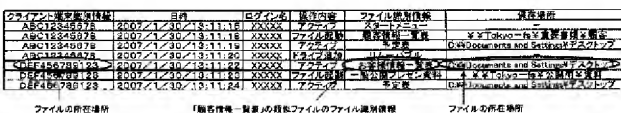 クライアント端末識別情報 日時 ログイン名 操作内容 ファイル識別情報 保存場所
ABC12345678 2007/1/30/13:11:15 XXXXX アクティブ スタートメニュー −
ABC12345678 2007/1/30/13:11:16 XXXXX ファイル起動 顧客情報一覧表 ¥¥Tokyo-fs¥重要書類¥顧客
ABC12345678 2007/1/30/13:11:19 XXXXX アクティブ 予定表 D:¥Documents and Settings¥デスクトップ
ABC12345678 2007/1/30/13:11:20 XXXXX ドライブ追加 リムーバブル −
DEF456789123 2007/1/30/13:11:22 XXXXX アクティブ お客様情報一覧表 D:¥Documents and Settings¥デスクトップ
DEF456789123 2007/1/30/13:11:23 XXXXX ファイル起動 一般公開プレゼン資料 ¥¥Tokyo-fs¥公開用¥資料
DEF456789123 2007/1/30/13:11:24 XXXXX アクティブ 予定表 D:¥Documents and Settings¥デスクトップ
ファイルの所在場所 「顧客情報一覧表」の類似ファイルのファイル識別情報 ファイルの所在場所